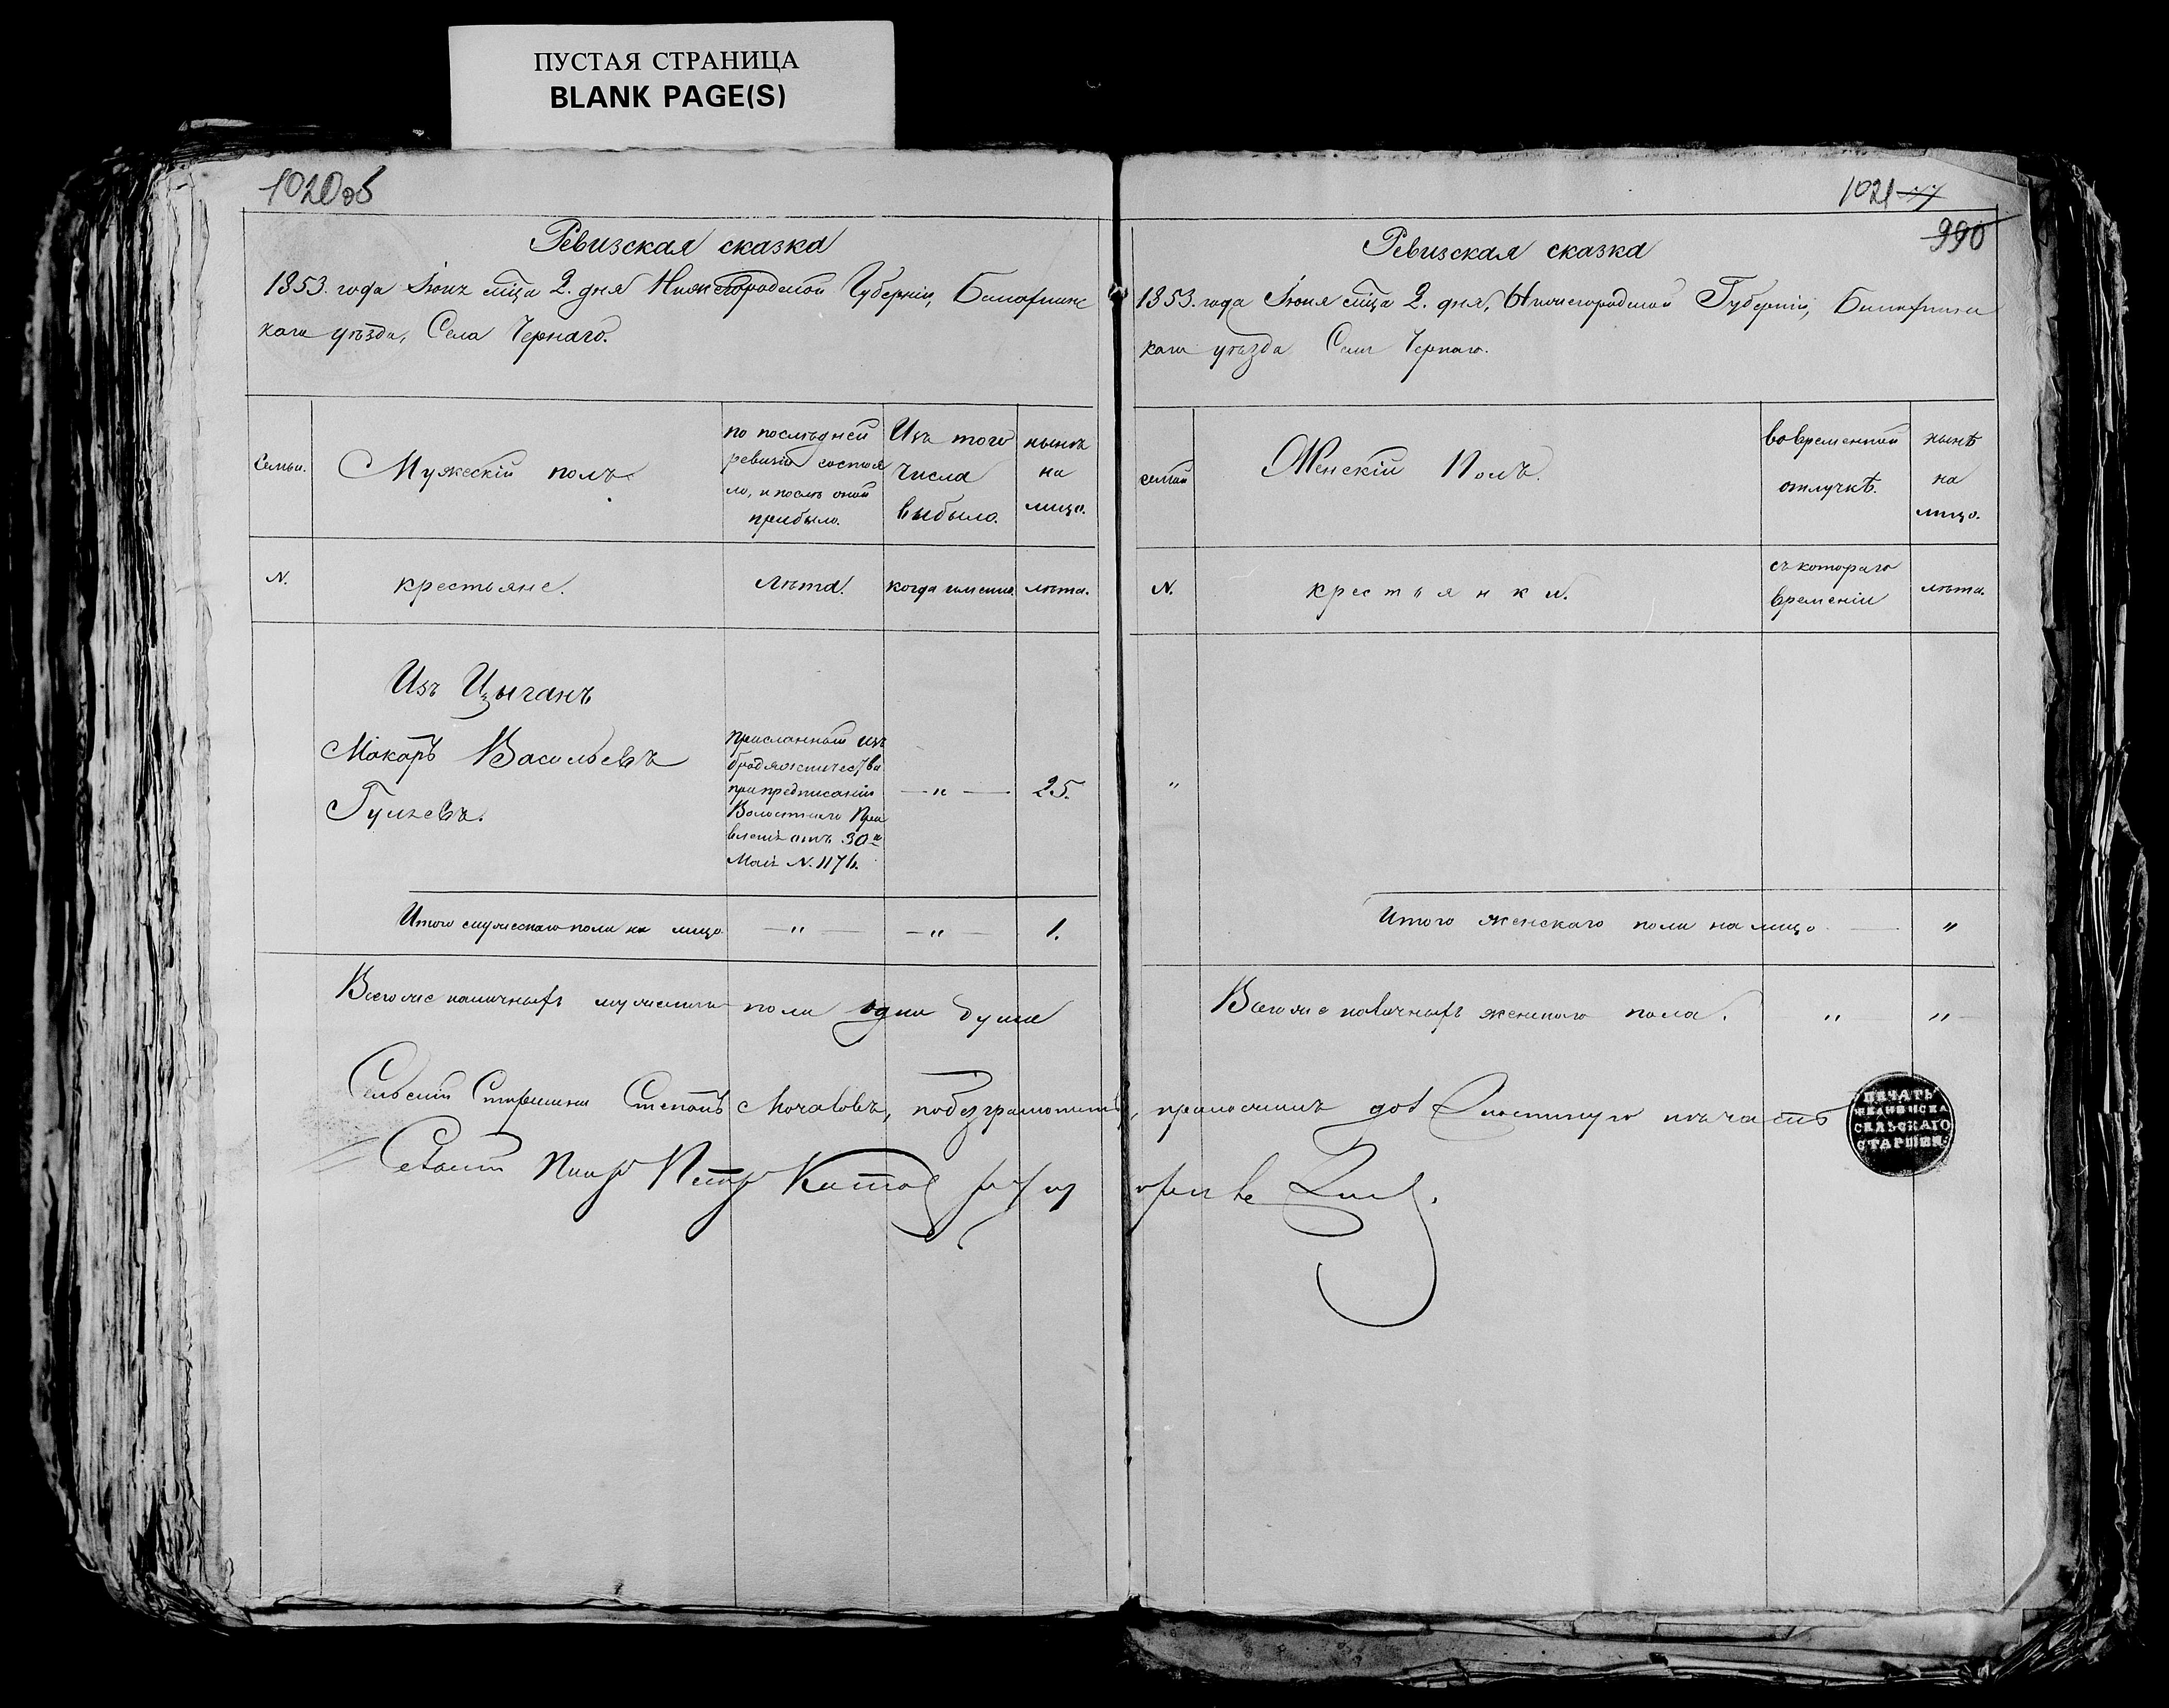 ПУСТАЯ СТРАНИЦА
BLANK PAGE(S)
1020об
Ревизская сказка
1853. года Іюня мца 2. дня Нижегородской Губерніи, Балахнинс
каго уѣзда, Села Чернаго.
Семьи.
Мужескій полъ.
по послѣдней
ревизіи состоя
ло, и послѣ оной
прибыло.
Изъ того
числа
выбыло.
нынѣ
на
лицо.
N.
крестьяне.
лѣта.
когда именно.
лѣта.
Изъ Цыганъ
Макаръ Васильевъ
присланный изъ
бродяжничества
при предписаніи
Волостнаго Пра
вленія отъ 30го
Маія N. 1176.
— " —
25.
Итого мужескаго пола на лицо
— " —
— " —
1.
Всего же наличныхъ мужескаго пола одна душа
1021
990
Ревизская сказка
1853. года Іюня мца 2. дня, Нижегородской Губерніи, Балахнинс
каго уѣзда Села Чернаго.
семьи
Женскій Полъ.
во временной
отлучкѣ.
нынѣ
на
лицо.
N.
крестьянки.
съ котораго
времени
лѣта.
"
Итого женскаго пола на лицо —
"
Всего же наличныхъ женскаго пола.
"
"
Сельскій Старшина Степанъ Мочаловъ, по безграмотству, приложилъ должностную печать
ПЕЧАТЬ
СЕЛЬСКАГО
СТАРШИН.